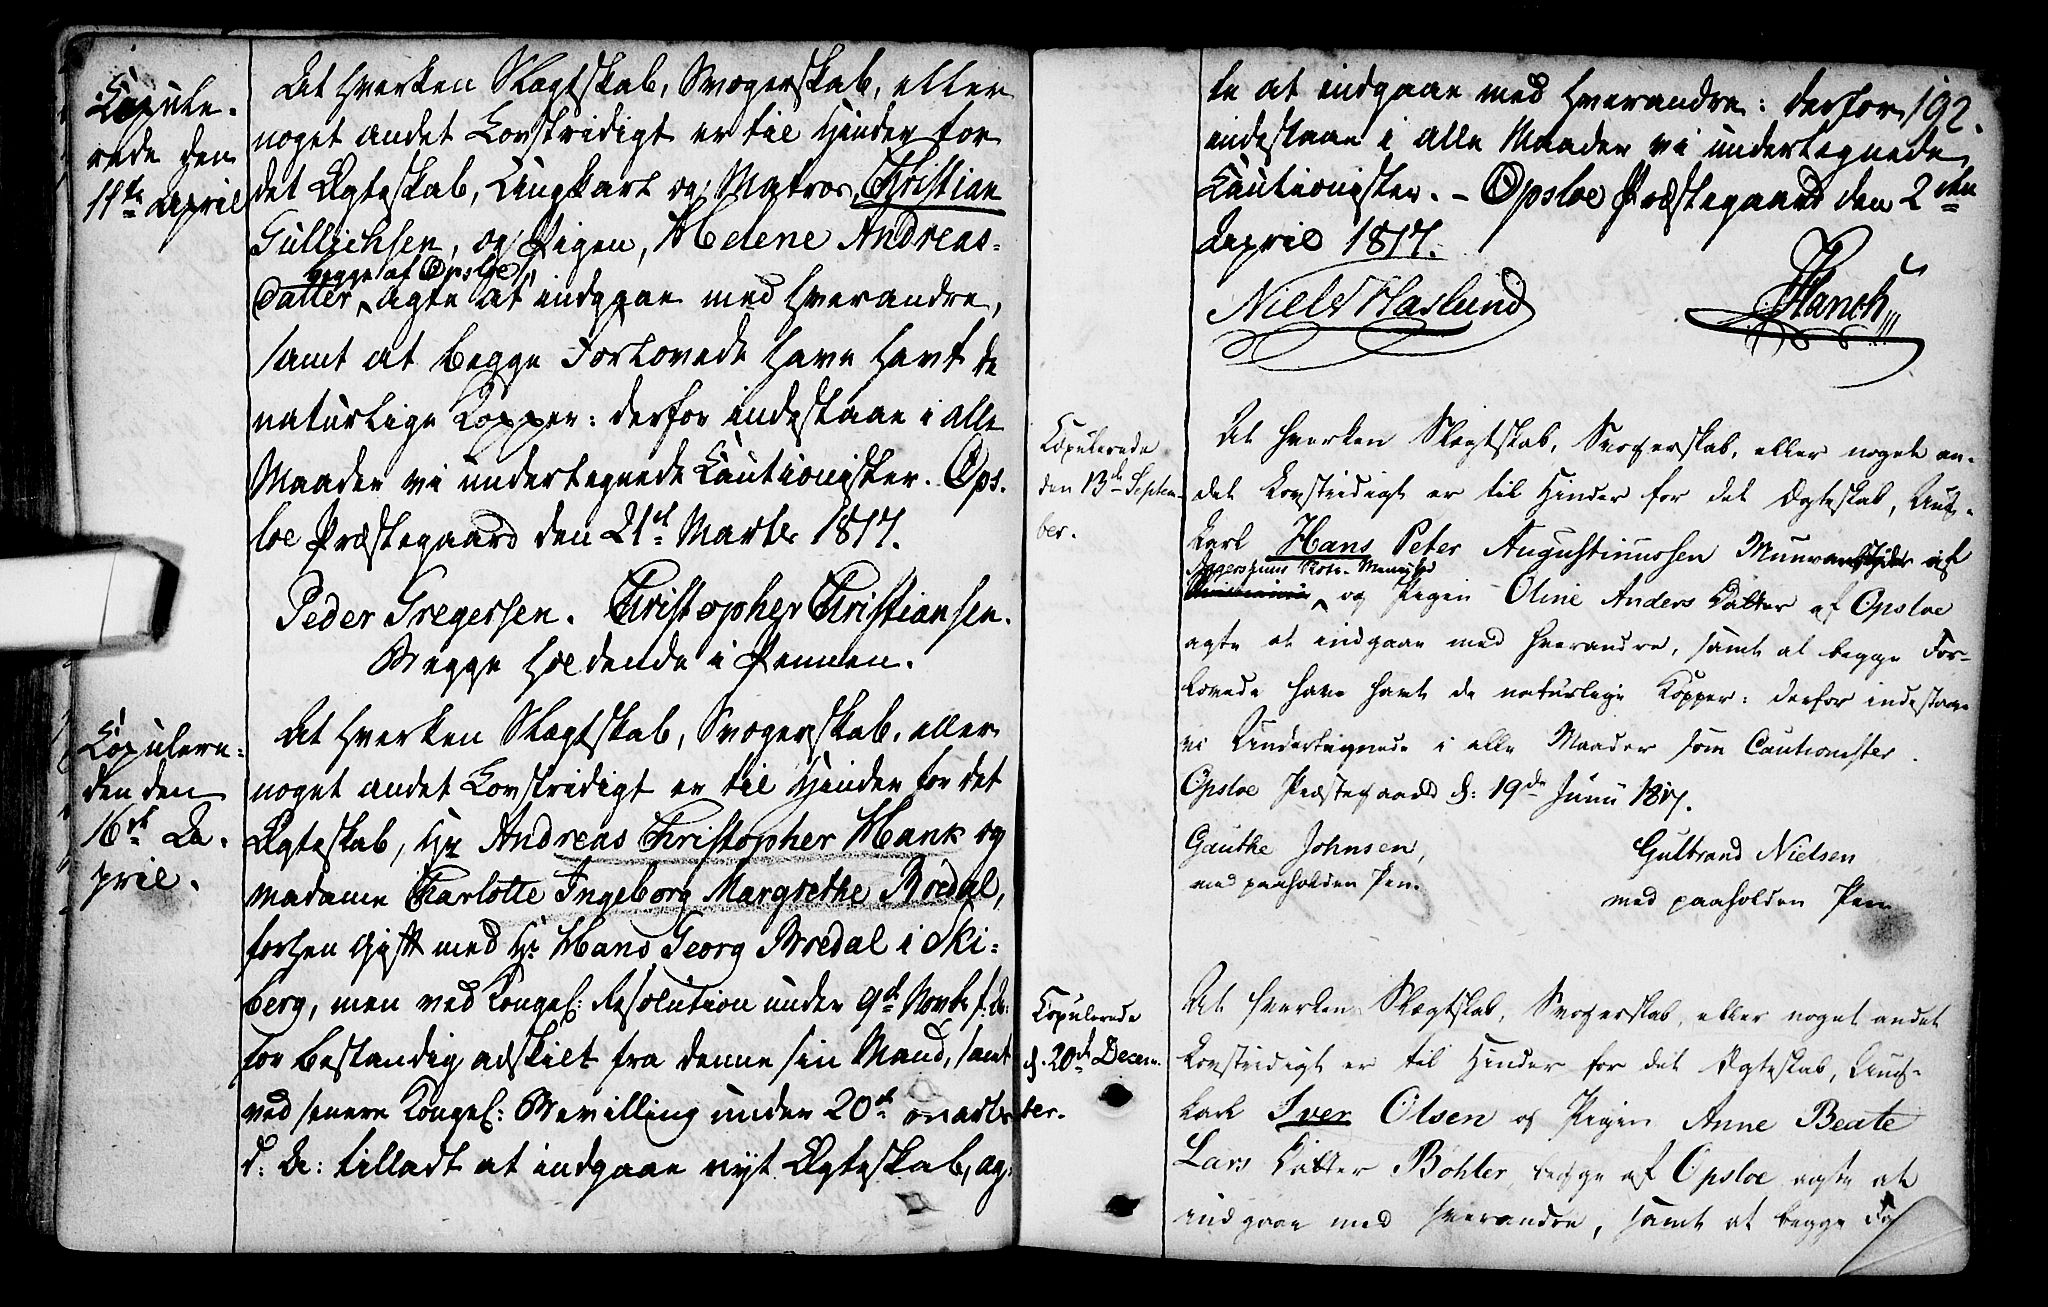 Copule-
rede den
11te April
At hverken Slægtskab, Svogerskab, eller
noget andet Lovstridigt er til Hinder for
det Ægteskab, Ungkarl og Matros, Christian
Gullichsen, og Pigen, Helene Andreas-
begge af Opsloe,
Datter agte at indgaae med hverandre,
samt at begge Forlovede have havt de
naturlige Kopper: derfor indestaae i alle
Maader vi undertegnede Cautionister. Ops-
loe Præstegaard den 21de Marts 1817.
Peder Gregersen. Christopher Christiansen.
Begge holdende i Pennen.
Copulere-
den den
16de A-
pril.
At hverken Slægtskab, Svogerskab, eller
noget andet Lovstridigt er til Hinder for det
Ægteskab, Hr Andreas Christopher Hank og
Madame Charlotte Ingeborg Margrethe Bredal,
forhen gift med Hr Hans Georg Bredal i Ski-
berg, men ved Kongel: Resolution under 9de Novbr f. A:
for bestandig adskilt fra denne sin Mand, samt
ved senere Kongel: Bevilling under 20de Marts
d: A: tilladt at indgaae nyt Ægteskab, ag-
192.
te at indgaae med hverandre: derfor
indestaae i alle Maader vi undertegnede
Cautionister. - Opsloe Præstegaard den 2den
April 1817.
Niels Haslund Hanch
Copulerede
den 13de Septem-
ber.
At hverken Slægtskab, Svogerskab, eller noget an-
det Lovstridigt er til Hinder for det Ægteskab, Ung-
Karl Hans Peter Augustinussen af
og Pigen Oline Anders Datter af Opsloe
agte at indgaae med hverandre, samt at begge For-
lovede have havt de naturlige Kopper: derfor indestaae
vi Undertegnede i alle Maader som Cautionister.
Opsloe Præstegaard d: 19de Junii 1817.
Gauthe Johnsen, Gulbrand Nielsen
med paaholden Pen. med paaholden Pen
Copulerede
d. 20de Decem-
ber.
At hverken Slægtskab, Svogerskab, eller noget andet
Lovstridigt er til Hinder for det Ægteskab, Ung-
karl Iver Olsen og Pigen Anne Beate
Lars Datter Bohler, begge af Opsloe agte at
indgaae med hverandre, samt at begge Fo